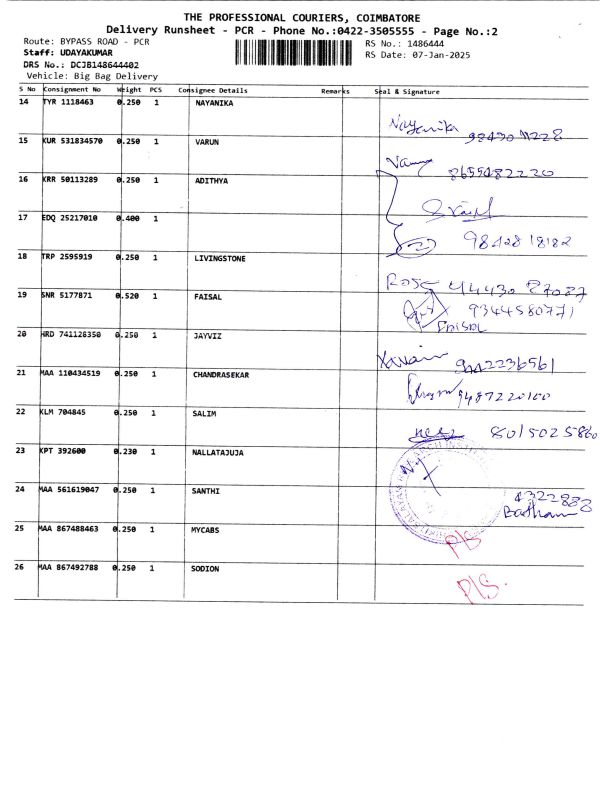 THE PROFESSIONAL COURIERS, COIMBATORE
Delivery Runsheet - PCR - Phone No.:0422-3505555 - Page No.:2
Route: BYPASS ROAD - PCR RS No.: 1486444
Staff: UDAYAKUMAR RS Date: 07-Jan-2025
DRS No.: DCJB148644402
Vehicle: Big Bag Delivery
S No Consignment No Weight PCS Consignee Details Remarks Seal & Signature
14 TYR 1118463 0.250 1 NAYANIKA
Nayanika
15 KUR 531834570 0.250 1 VARUN
8655482220
16 KRR 50113289 0.250 1 ADITHYA
17 EDQ 25217010 0.400 1
9842818182
18 TRP 2595919 0.250 1 LIVINGSTONE
19 SNR 5177871 0.520 1 FAISAL
9344580771
20 HRD 741128350 0.250 1 JAYVIZ
21 MAA 110434519 0.250 1 CHANDRASEKAR
9487220100
22 KLM 704845 0.250 1 SALIM
8015025860
23 KPT 392600 0.230 1 NALLATAJUJA
24 MAA 561619047 0.250 1 SANTHI
25 MAA 867488463 0.250 1 MYCABS
P/S
26 MAA 867492788 0.250 1 SODION
P/S.